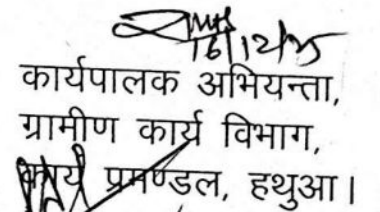 16/12/25
कार्यपालक अभियन्ता,
ग्रामीण कार्य विभाग,
कार्य प्रमण्डल, हथुआ।